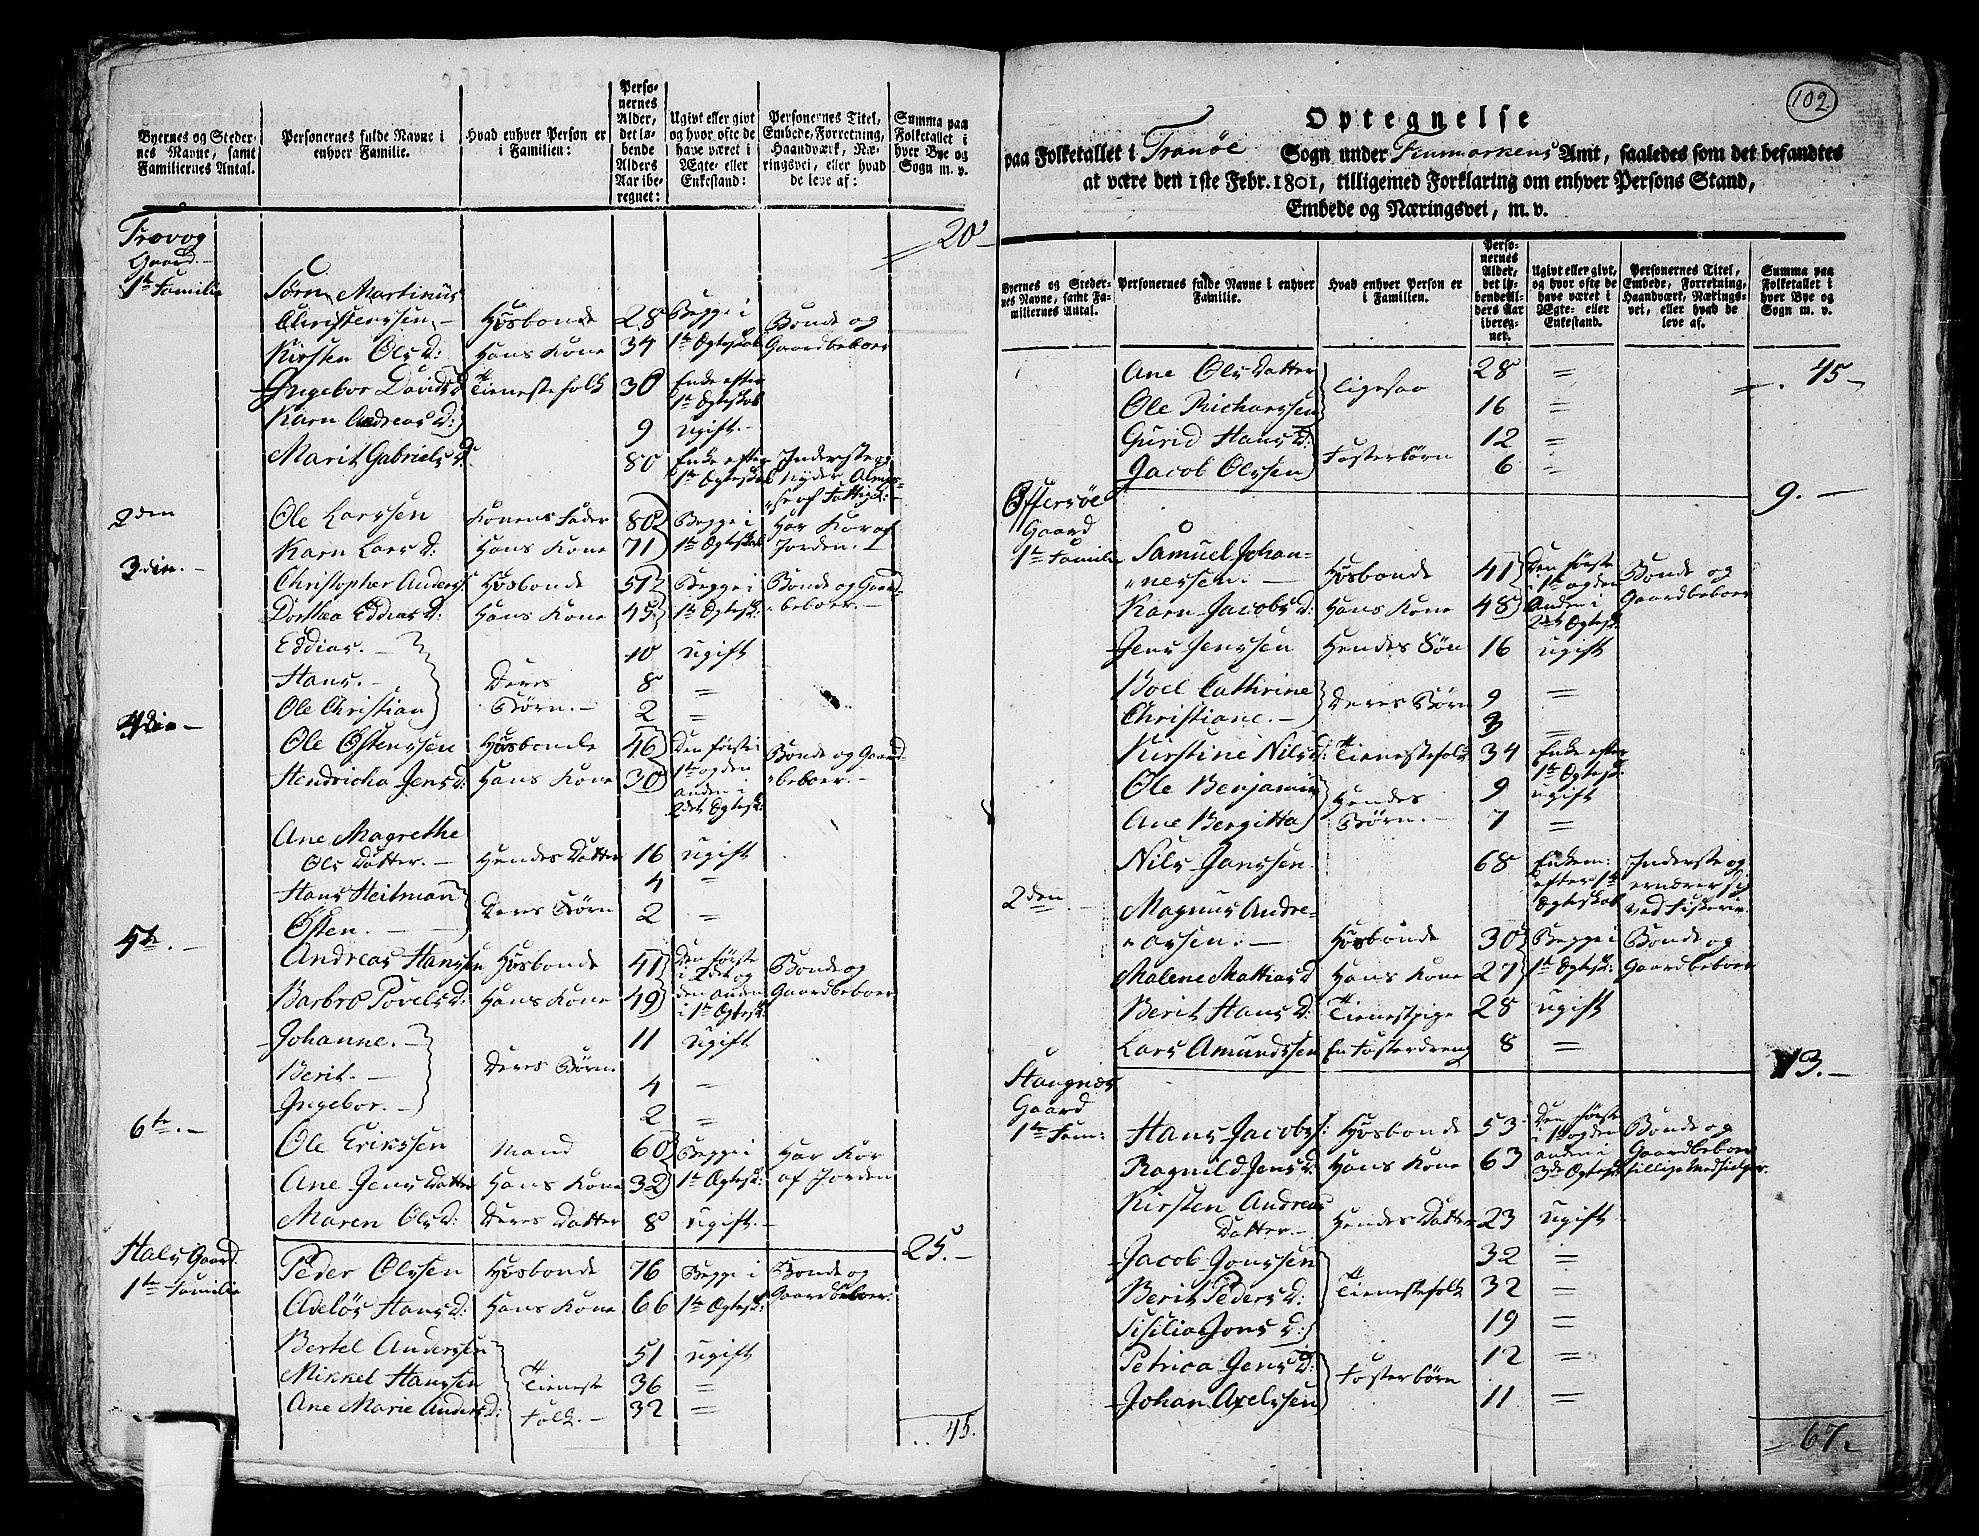 Byernes og Steder-
nes Navne, samt
Familiernes Antal.
Personernes fulde Navne i
enhver Familie.
Hvad enhver Person er
i Familien:
Perso-
nernes
Alder,
det lø-
bende
Alders
Aar ibe-
regnet:
Ugivt eller givt
og hvor ofte de
have været i
Ægte- eller
Enkestand:
Personernes Titel,
Embede, Forretning,
Haandværk, Næ-
ringsvei, eller hvad
de leve af:
Summa paa
Folketallet i
hver Bye og
Sogn m. v.
20
Trovog
Gaard.
1te Familie
Sørn Martinus
Christenssen Hosbonde 28 Begge i Bonde og
Kirsten Ols D: Hans Kone 34 1te Ægteskab Gaardbeboer
Ingebor Davids D Tienestefolk 30 Enke efter
1te Ægteskab
Karn Andreas D: 9 ugift
Marit Gabriels D. 80 Enke efter Inderste og
1te Ægteskab nyder Almis-
se af Fattigk:
2den Ole Larssen Konens Fader 80 Begge i Har Kor af
Karn Lars D: Hans Kone 71 1te Ægteskab Jorden.
3die Christopher Anders: Hosbonde 51 Begge i Bonde og Gaard-
Dorthea Eddias D: Hans Kone 45 1te Ægtesk: beboer.
Eddias. 10 ugift
Hans. Deres 8 =
Ole Christian Børn. 2 =
4die Ole Østenssen Hosbonde 46 Den første i Bonde og Gaard-
Hendricha Jens D: Hans Kone 30 1te og den beboer.
anden i
2det Ægtesk:
Ane Magrethe
Ols Datter. Hendes Datter 16 ugift
Hans Heitman 4 =
Østen. Deres Børn 2 =
5te Andreas Hanssen Hosbonde 41 Den første Bonde og
i 2det og
Barbro Povels D: Hans Kone 49 den anden Gaardbeboer
i 1te Ægtesk:
Johanne. 11 ugift
Berit. Deres Børn. 4 =
Ingebor. 2 =
6te Ole Erikssen Mand 60 Begge i Har Kor
Ane Jens Datter Hans Kone 32 1te Ægtesk: af Jorden
Maren Ols D: Deres Datter 8 ugift.
25.
Hals Gaard
1te Familie Peder Olssen Hosbonde 76 Begge i Bonde og
Adelös Hans D: Hans Kone 66 1te Ægtesk: Gaardbeboer.
Bertel Anderssen 51 ugift
Mikkel Hanssen Tieneste 36 =
Ane Marie Anders D: Folk. 32 =
45.
102.
Optegnelse
paa Folketallet i Tranöe Sogn under Finmarkens Amt, saaledes som det befandtes
at være den 1ste Febr. 1801, tilligemed Forklaring om enhver Persons Stand,
Embede og Næringsvei, m. v.
Byernes og Steder-
nes Navne, samt Fa-
miliernes Antal.
Personernes fulde Navne i enhver
Familie.
Hvad enhver Person er
i Familien.
Perso-
nernes
Alder,
det lø-
bende Al-
ders Aar
ibereg-
net.
Ugivt eller givt,
og hvor ofte de
have været i
Ægte- eller
Enkestand.
Personernes Titel,
Embede, Forretning,
Haandværk, Nærings-
vei, eller hvad de
leve af.
Summa paa
Folketallet i
hver Bye og
Sogn m. v.
45
Ane Ols Datter 28 =
ligesaa
Ole Richarssen 16 =
Gurid Hans D: 12 =
Fosterbørn
Jacob Olssen 6 =
9.
Offersøe
Gaard
1te Familie Samuel Johan-
nessen. Hosbonde 41 Den første Bonde og
i 1te og den
Karn Jacobs D: Hans Kone 48 Anden i Gaardbeboer
2det Ægtesk:
Jens Jenssen Hendes Søn 16 ugift
Boel Cathrine 9 =
Deres Børn
Christiane. 3 =
Kirstine Nils D: Tienestefolk 34 Enke efter
1te Ægtesk:
Ole Benjamin Hendes 9 ugift
Ane Bergitta Børn. 7 =
Nils Janssen 68 Enkem: Inderste og
efter 1te ernærer sig
Ægteskab ved Fiskerie.
2den Magnus Andre-
assen. Hosbonde 30 Begge i Bonde og
Malene Mathias D Hans Kone 27 1te Ægtesk: Gaardbeboer
Berit Hans D: Tienestpige 28 ugift
Lars Amundssen En Fosterdreng 8 =
13.
Stangnæs
Gaard
1te Fam: Hans Jacobs: Hosbonde 53 Den første Bonde og
i 1te og den
Ragnild Jens D: Hans Kone 63 anden i Gaardbeboer
3die Ægtesk: tillige Medhielper.
Kirsten Andreas
Datter Hendes Datter 23 ugift
Jacob Jonssen 32 =
Berit Peders D: Tienestefolk 32 =
Sisilia Jons D: 19 =
Petrica Jens D: 12 =
Fosterbørn
Johan Axelssen 11 =
67.